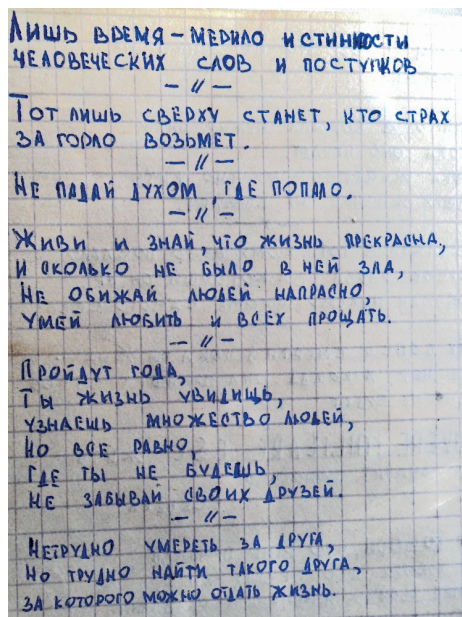 Лишь время – мерило истинности
человеческих слов и поступков
— // —
Тот лишь сверху станет, кто страх
за горло возьмет.
— // —
Не падай духом, где попало.
— // —
Живи и знай, что жизнь прекрасна,
и сколько не было в ней зла,
не обижай людей напрасно,
умей любить и всех прощать.
— // —
Пройдут года,
ты жизнь увидищь,
узнаешь множество людей,
но все равно,
где ты не будешь,
не забывай своих друзей.
— // —
Нетрудно умереть за друга,
но трудно найти такого друга,
за которого можно отдать жизнь.